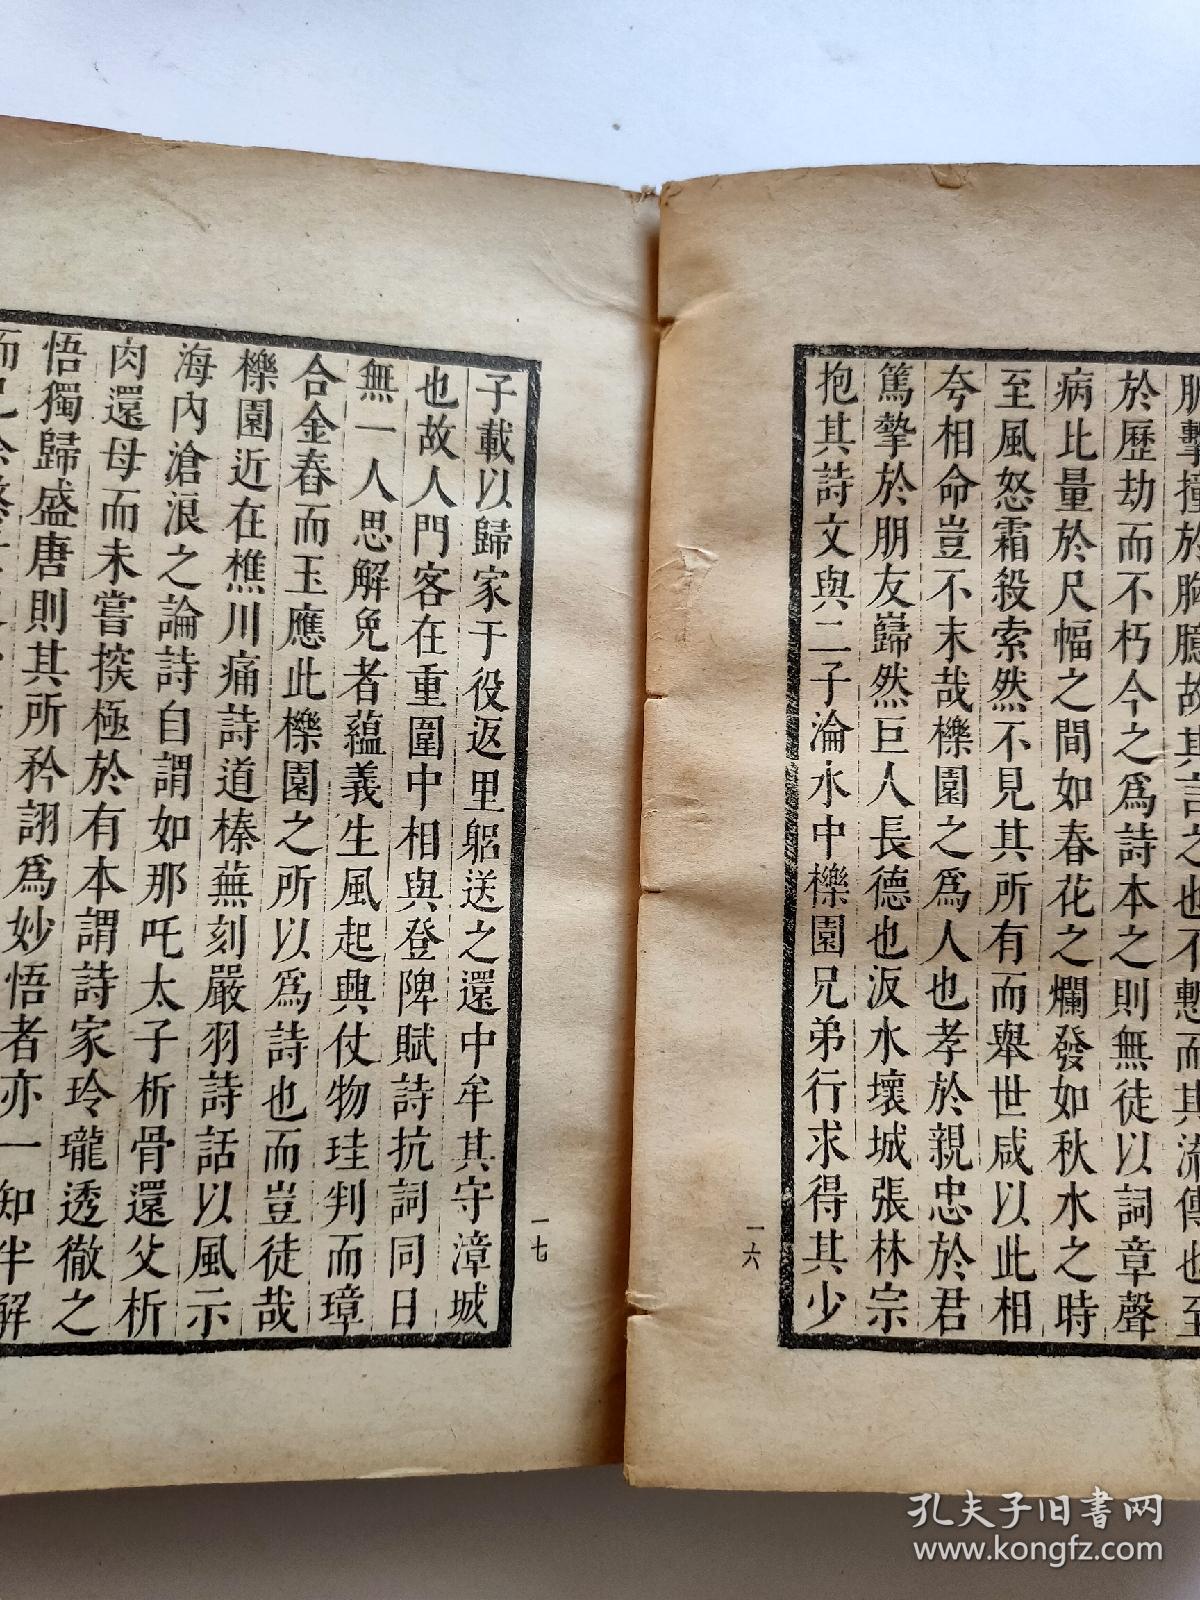 脈擊撞於胸臆故其言之也不慙而其流傳也至
於歷劫而不朽今之爲詩本之則無徒以詞章聲
病比量於尺幅之間如春花之爛發如秋水之時
至風怒霜殺索然不見其所有而舉世咸以此相
夸相命豈不末哉櫟園之爲人也孝於親忠於君
篤摯於朋友巋然巨人長德也汳水壞城張林宗
抱其詩文與二子淪水中櫟園兄弟行求得其少
一六
子載以歸家于役返里躬送之還中牟其守漳城
也故人門客在重圍中相與登陴賦詩抗詞同日
無一人思解免者蘊義生風起興仗物珪判而璋
合金舂而玉應此櫟園之所以爲詩也而豈徒哉
櫟園近在樵川痛詩道榛蕪刻嚴羽詩話以風示
海內滄浪之論詩自謂如那吒太子析骨還父析
肉還母而未嘗揬極於有本謂詩家玲瓏透徹之
悟獨歸盛唐則其所矜詡爲妙悟者亦一知半解
而已余
一七
孔夫子旧书网
www.kongfz.com